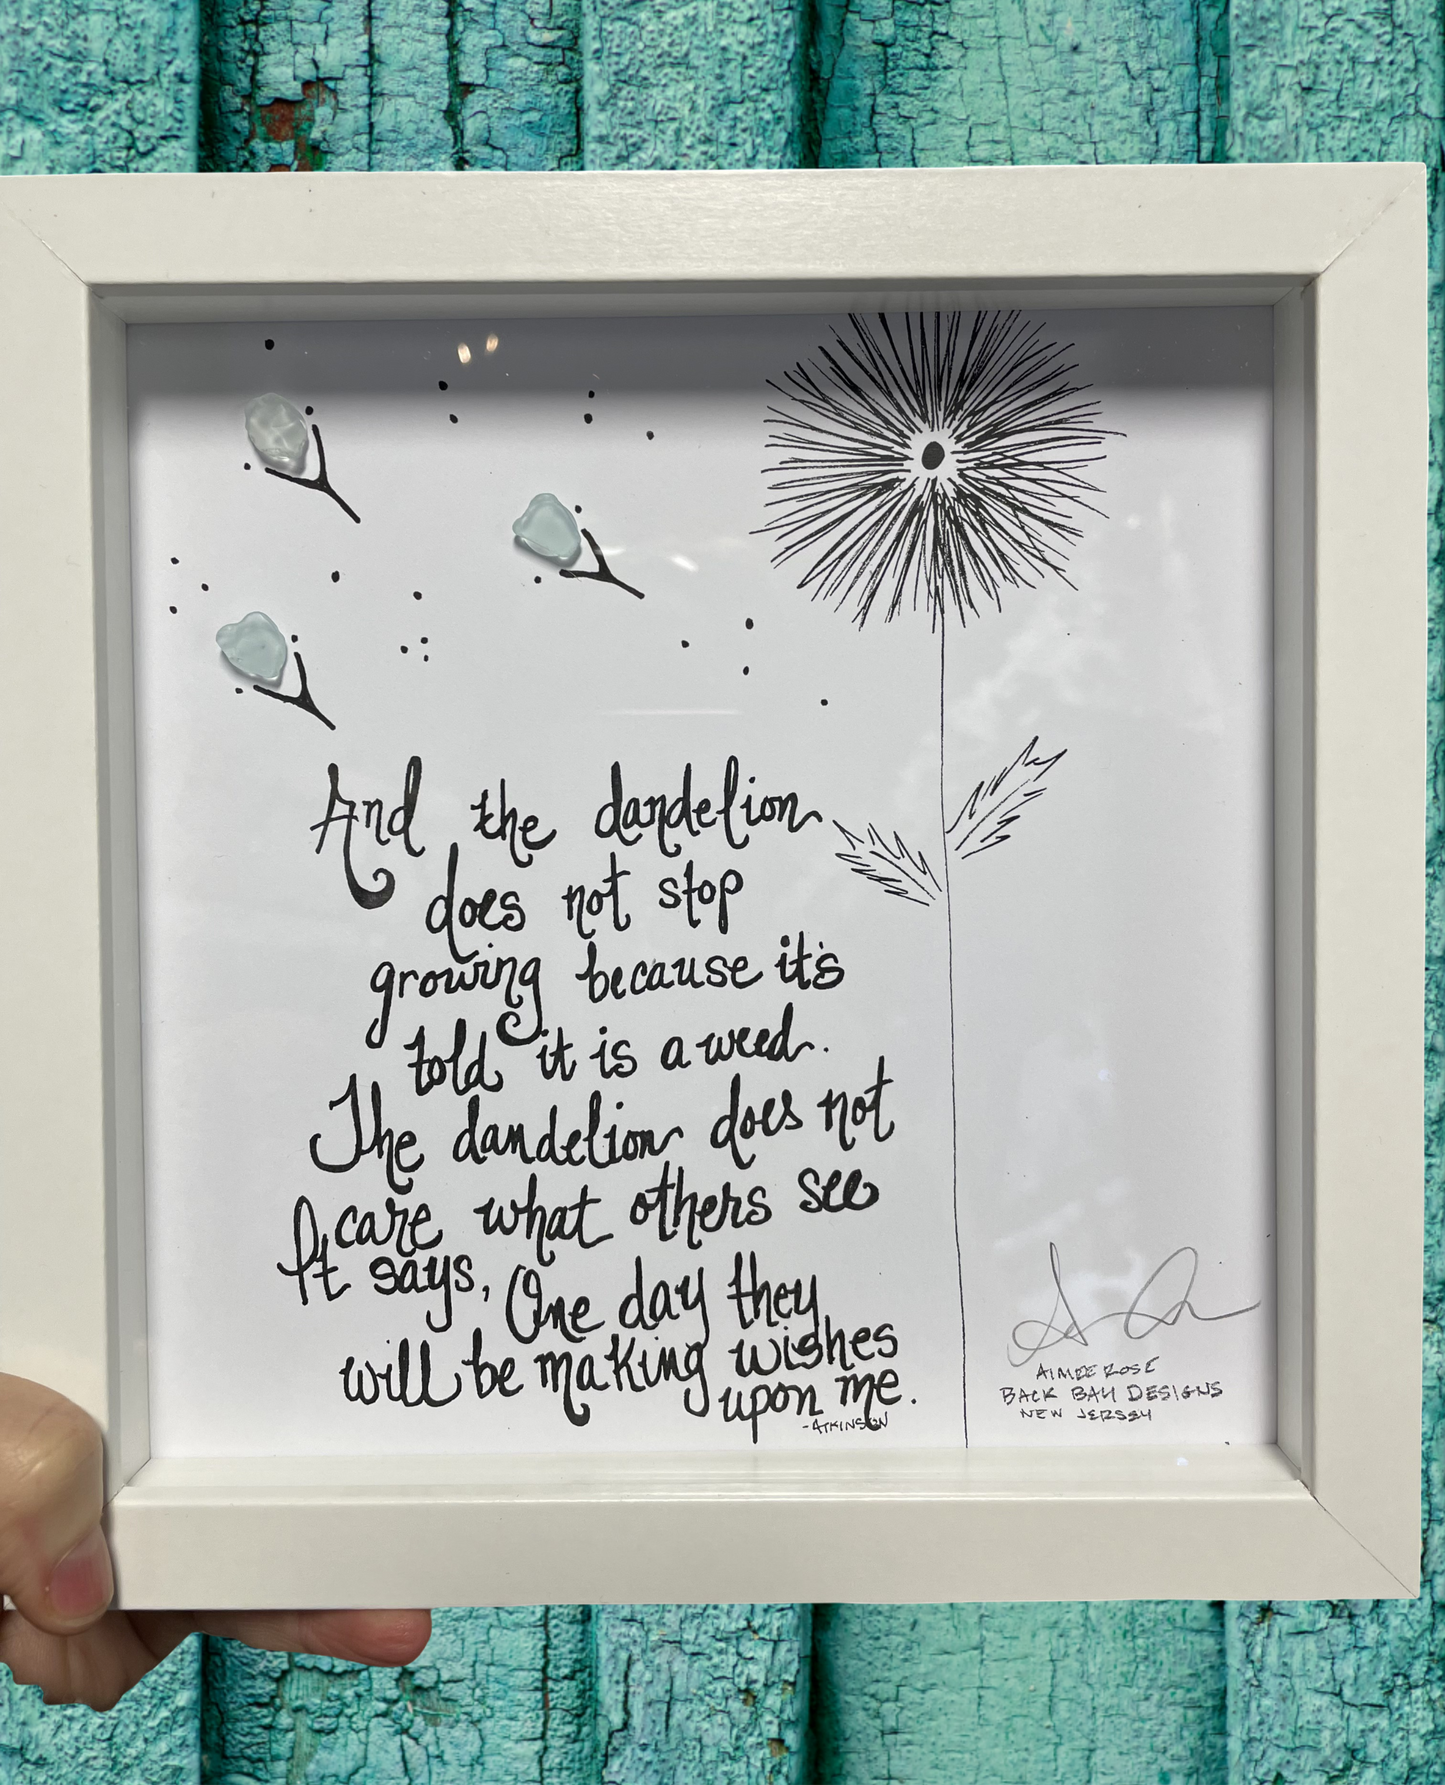 And the dandelion
does not stop
growing because it's
told it is a weed.
The dandelion does not
care what others see
It says, One day they
will be making wishes
upon me.
-ATKINSON
AIMEE ROSE
BACK BAY DESIGNS
NEW JERSEY